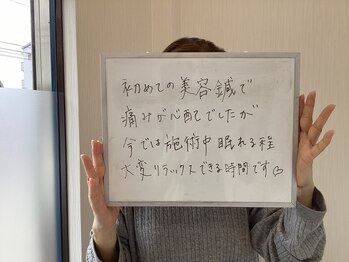 初めての美容鍼で
痛みが心配でしたが
今では施術中眠れる程
大変リラックスできる時間です♡